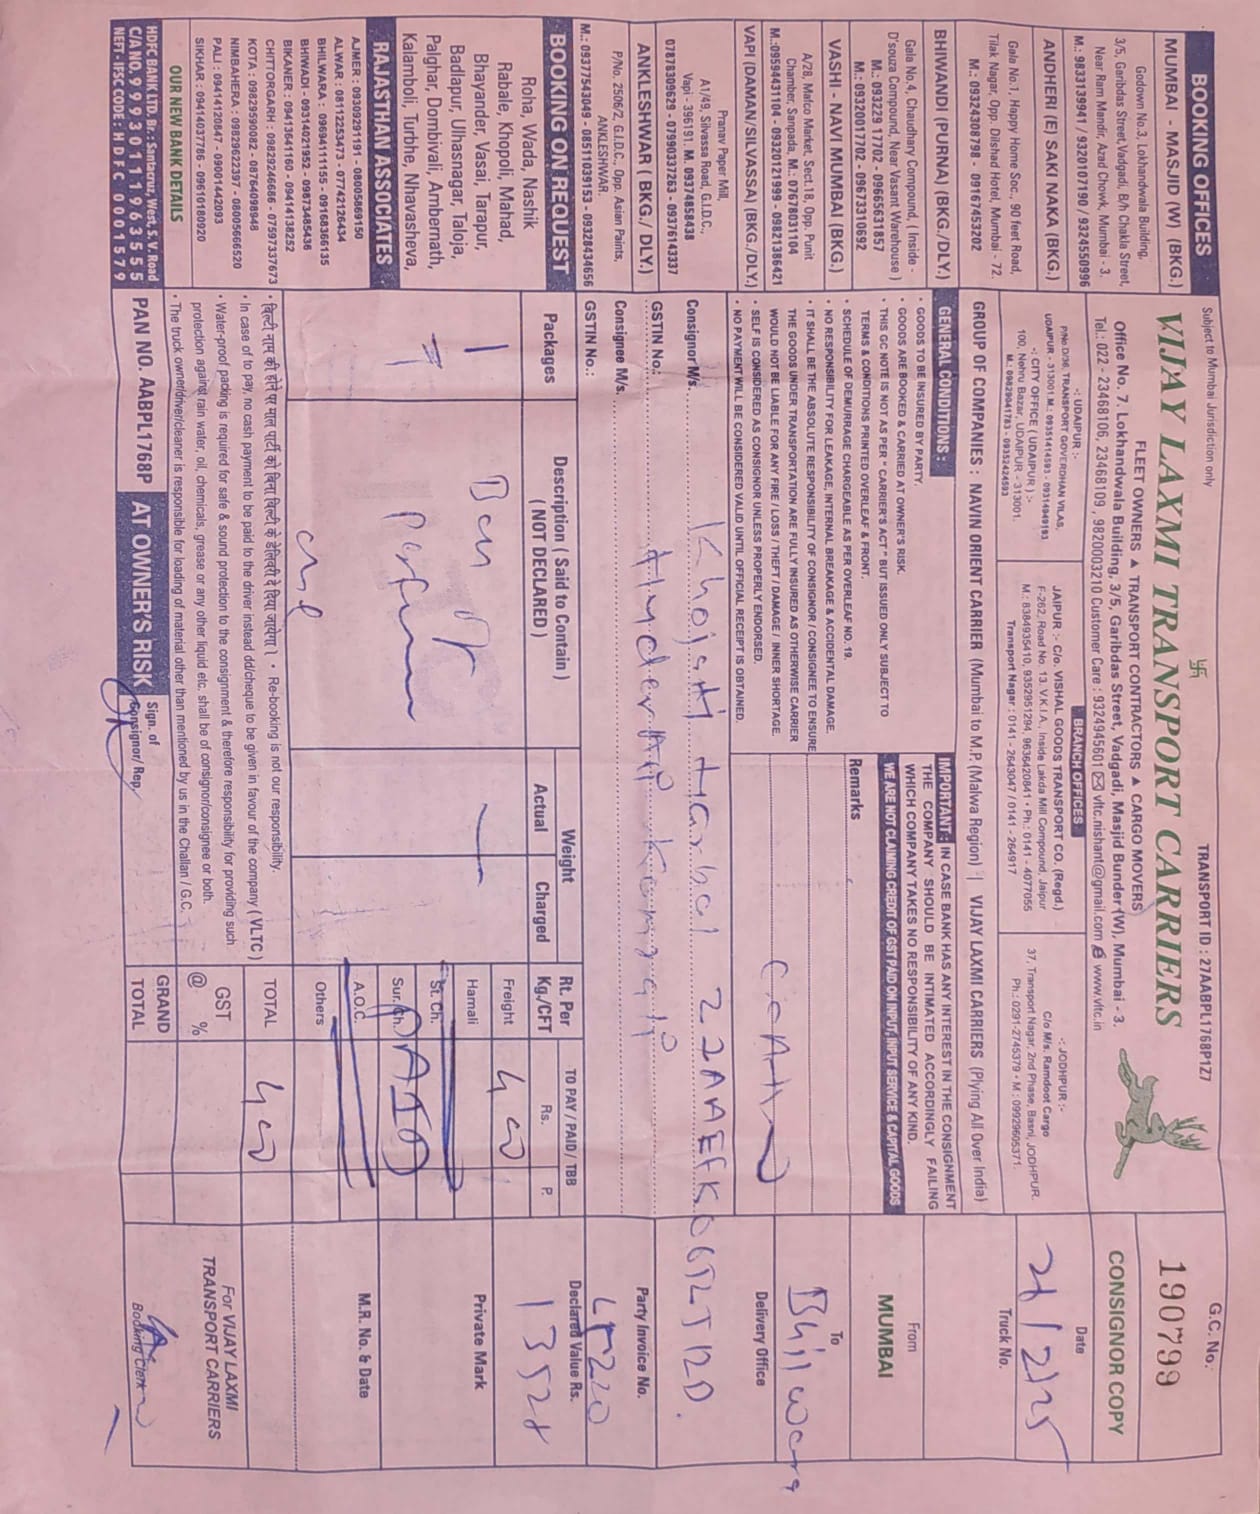 Subject to Mumbai Jurisdiction only
TRANSPORT ID : 27AABPL1768P1Z7
G.C. No.
190799
VIJAY LAXMI TRANSPORT CARRIERS
FLEET OWNERS ▲ TRANSPORT CONTRACTORS ▲ CARGO MOVERS
Office No. 7, Lokhandwala Building, 3/5, Garibdas Street, Vadgadi, Masjid Bunder (W), Mumbai - 3.
Tel.: 022 - 23468106, 23468109 , 9820003210 Customer Care : 9324945601 vltc.nishant@gmail.com www.vltc.in
CONSIGNOR COPY
BOOKING OFFICES
MUMBAI - MASJID (W) (BKG.)
Godown No.3, Lokhandwala Building,
3/5, Garibdas Street,Vadgadi, B/h Chakla Street,
Near Ram Mandir, Azad Chowk, Mumbai - 3.
M.: 9833139941 / 9320107190 / 9324550996
ANDHERI (E) SAKI NAKA (BKG.)
Gala No.1, Happy Home Soc., 90 feet Road,
Tilak Nagar, Opp. Dilshad Hotel, Mumbai - 72.
M.: 09324308798 - 09167453202
BHIWANDI (PURNA) (BKG./DLY.)
Gala No.4, Chaudhary Compound, ( Inside -
D'souza Compound, Near Vasant Warehouse )
M.: 093229 17702 - 09665631857
M.: 09320017702 - 09673310692
VASHI - NAVI MUMBAI (BKG.)
A/28, Mafco Market, Sect.18, Opp. Punit
Chamber, Sanpada, M.: 07678031104
M.:09594431104 - 09320121999 - 09821386421
VAPI (DAMAN/SILVASSA) (BKG./DLY.)
Pranav Paper Mill,
A1/49, Silvassa Road, G.I.D.C.,
Vapi - 396191. M. 09374858438
07878309629 - 07990337263 - 09376143337
ANKLESHWAR ( BKG./ DLY.)
P/No. 2506/2, G.I.D.C., Opp. Asian Paints,
ANKLESHWAR.
M.: 09377543049 - 08511039153 - 09328434656
BOOKING ON REQUEST
Roha, Wada, Nashik
Rabale, Khopoli, Mahad,
Bhayander, Vasai, Tarapur,
Badlapur, Ulhasnagar, Taloja,
Palghar, Dombivali, Ambernath,
Kalamboli, Turbhe, Nhavasheva,
RAJASTHAN ASSOCIATES
AJMER : 09309291191 - 08005869150
ALWAR : 08112253473 - 07742126434
BHILWARA : 09694111155 - 09168366135
BHIWADI - 09314021952 - 09873485438
BIKANER : 09413641160 - 09414138252
CHITTORGARH : 09829246666 - 07597337673
KOTA : 09829590082 - 08764098948
NIMBAHERA : 09829622397 - 08005666520
PALI : 09414120847 - 09001442093
SIKHAR : 09414037786 - 09610180920
OUR NEW BANK DETAILS
HDFC BANK LTD. Br.: Santacruz, West, S.V. Road
C/A NO. 99993011963555
NEFT - IFSC CODE : HDFC 0001579
BRANCH OFFICES
-: UDAIPUR :-
P/No D/36, TRANSPORT GOVERDHAN VILAS,
UDAIPUR - 313001.M.: 09351414593 - 09314949193
-: CITY OFFICE ( UDAIPUR ) :-
100, Nehru Bazar, UDAIPUR - 313001.
M.: 09829041783 - 09352424593
JAIPUR :- C/o. VISHAL GOODS TRANSPORT CO. (Regd.)
F-262, Road No. 13, V.K.I.A., Inside Lakda Mill Compound, Jaipur
M.: 8384935410, 9352951294, 9636420841 • Ph.: 0141 - 4077055
Transport Nagar : 0141 - 2643047 / 0141 - 264917
-: JODHPUR :-
C/o M/s. Ramdoot Cargo
37, Transport Nagar, 2nd Phase, Basni, JODHPUR.
Ph.: 0291-2745379 • M : 09929605371.
Date
21/2/25
Truck No.
GROUP OF COMPANIES : NAVIN ORIENT CARRIER (Mumbai to M.P. (Malwa Region) | VIJAY LAXMI CARRIERS (Plying All Over India)
GENERAL CONDITIONS :
• GOODS TO BE INSURED BY PARTY.
• GOODS ARE BOOKED & CARRIED AT OWNER'S RISK.
• THIS GC NOTE IS NOT AS PER " CARRIER'S ACT " BUT ISSUED ONLY SUBJECT TO
TERMS & CONDITIONS PRINTED OVERLEAF & FRONT.
• SCHEDULE OF DEMURRAGE CHARGEABLE AS PER OVERLEAF NO. 19.
• NO RESPONSIBILITY FOR LEAKAGE, INTERNAL BREAKAGE & ACCIDENTAL DAMAGE.
• IT SHALL BE THE ABSOLUTE RESPONSIBILITY OF CONSIGNOR / CONSIGNEE TO ENSURE
THE GOODS UNDER TRANSPORTATION ARE FULLY INSURED AS OTHERWISE CARRIER
WOULD NOT BE LIABLE FOR ANY FIRE / LOSS / THEFT / DAMAGE / INNER SHORTAGE.
• SELF IS CONSIDERED AS CONSIGNOR UNLESS PROPERLY ENDORSED.
• NO PAYMENT WILL BE CONSIDERED VALID UNTIL OFFICIAL RECEIPT IS OBTAINED.
IMPORTANT : IN CASE BANK HAS ANY INTEREST IN THE CONSIGNMENT
THE COMPANY SHOULD BE INTIMATED ACCORDINGLY FAILING
WHICH COMPANY TAKES NO RESPONSIBILITY OF ANY KIND.
WE ARE NOT CLAIMING CREDIT OF GST PAID ON INPUT, INPUT SERVICE & CAPITAL GOODS
Remarks
From
MUMBAI
To
Bhilwara
Delivery Office
Consignor M/s. Khojati Harbal 22AAEFK0652J1ZD.
GSTIN No.: Hyder Ali Kamgali
Consignee M/s.
GSTIN No.:
Party Invoice No.
Packages
Description ( Said to Contain )
( NOT DECLARED )
Weight
Actual
Charged
Rt. Per
Kg./CFT
TO PAY / PAID / TBB
Rs.
P.
Declared Value Rs.
13528
1
Freight
400
Hamali
St. Ch.
Sur. Ch.
PAID
A.O.C.
Others
TOTAL
400
GST
@ %
GRAND
TOTAL
Private Mark
M.R. No. & Date
• बिल्टी नाम की होने पर माल पार्टी को बिना बिल्टी के डेलिवरी दे दिया जायेगा । • Re-booking is not our responsibility.
• In case of to pay, no cash payment to be paid to the driver instead dd/cheque to be given in favour of the company ( VLTC )
• Water-proof packing is required for safe & sound protection to the consignment & therefore responsibility for providing such
protection against rain water, oil, chemicals, grease or any other liquid etc. shall be of consignor/consignee or both.
• The truck owner/driver/cleaner is responsible for loading of material other than mentioned by us in the Challan / G.C.
PAN NO. AABPL1768P
AT OWNER'S RISK
Sign. of
Consignor/ Rep.
For VIJAY LAXMI
TRANSPORT CARRIERS
Booking Clerk